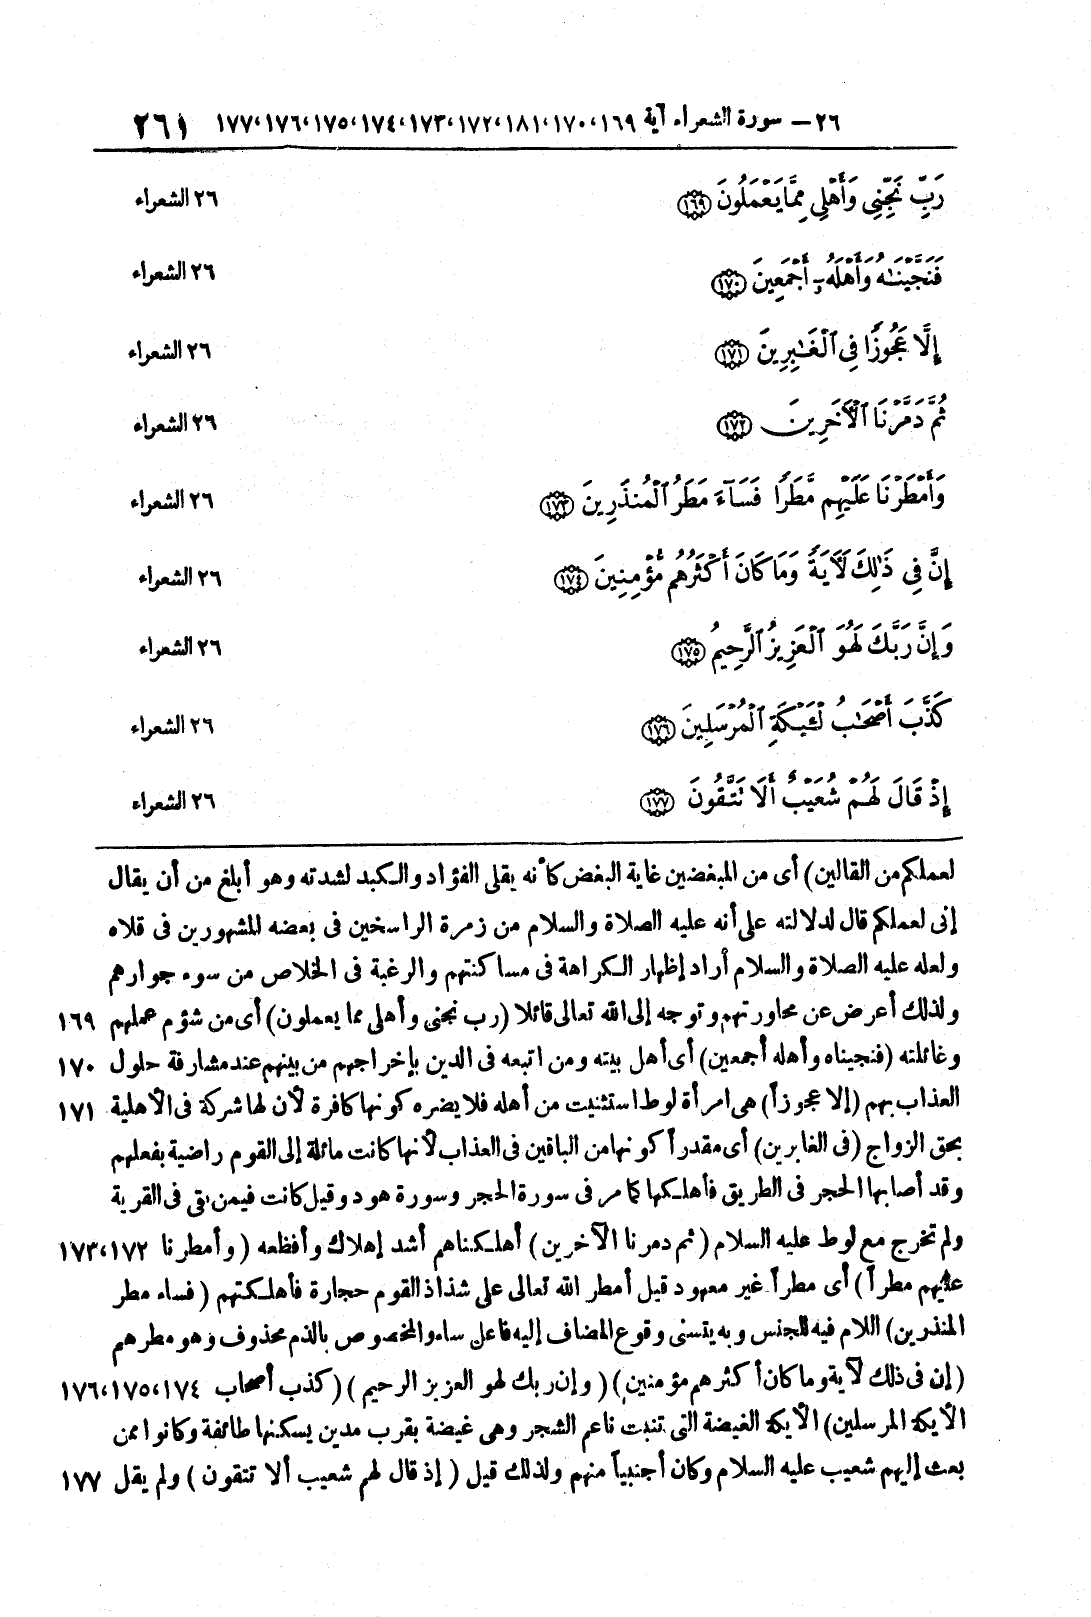 ٢٦ – سورة الشعراء آية ١٦٩، ١٧٠، ١٨١، ١٧٢، ١٧٣، ١٧٤، ١٧٥، ١٧٦، ١٧٧ ٢٦١
رَبِّ نَجِّنِى وَأَهْلِى مِمَّا يَعْمَلُونَ ١٦٩ ٢٦ الشعراء
فَنَجَّيْنَٰهُ وَأَهْلَهُۥٓ أَجْمَعِينَ ١٧٠ ٢٦ الشعراء
إِلَّا عَجُوزًا فِى ٱلْغَٰبِرِينَ ١٧١ ٢٦ الشعراء
ثُمَّ دَمَّرْنَا ٱلْأَخَرِينَ ١٧٢ ٢٦ الشعراء
وَأَمْطَرْنَا عَلَيْهِم مَّطَرًا فَسَآءَ مَطَرُ ٱلْمُنذَرِينَ ١٧٣ ٢٦ الشعراء
إِنَّ فِى ذَٰلِكَ لَأَيَةً وَمَا كَانَ أَكْثَرُهُم مُّؤْمِنِينَ ١٧٤ ٢٦ الشعراء
وَإِنَّ رَبَّكَ لَهُوَ ٱلْعَزِيزُ ٱلرَّحِيمُ ١٧٥ ٢٦ الشعراء
كَذَّبَ أَصْحَٰبُ لْـَٔيْكَةِ ٱلْمُرْسَلِينَ ١٧٦ ٢٦ الشعراء
إِذْ قَالَ لَهُمْ شُعَيْبٌ أَلَا تَتَّقُونَ ١٧٧ ٢٦ الشعراء
لعملكم من القالين) أى من المبغضين غاية البغض كأنه يقلى الفؤاد والكبد لشدته وهو أبلغ من أن يقال
إنى لعملكم قال لدلالته على أنه عليه الصلاة والسلام من زمرة الراسخين فى بعضه المشهورين فى قلاه
ولعله عليه الصلاة والسلام أراد إظهار الكراهة فى مساكنتهم والرغبة فى الخلاص من سوء جوارهم
ولذلك أعرض عن محاورتهم وتوجه إلى الله تعالى قائلا (رب نجنى وأهلى مما يعملون) أى من شؤم عملهم ١٦٩
وغائلته (فنجيناه وأهله أجمعين) أى أهل بيته ومن اتبعه فى الدين بإخراجهم من بينهم عند مشارفة حلول ١٧٠
العذاب بهم (إلا عجوزاً) هى امرأة لوط استثنيت من أهله فلا يضره كونها كافرة لأن لها شركة فى الأهلية ١٧١
بحق الزواج (فى الغابرين) أى مقدراً كونها من الباقين فى العذاب لأنها كانت مائلة إلى القوم راضية بفعلهم
وقد أصابها الحجر فى الطريق فأهلكها كما مر فى سورة الحجر وسورة هود وقيل كانت فيمن بقى فى القرية
ولم تخرج مع لوط عليه السلام (ثم دمرنا الآخرين) أهلكناهم أشد إهلاك وأفظعه (وأمطرنا ١٧٢، ١٧٣
عليهم مطراً) أى مطراً غير معهود قيل أمطر الله تعالى على شذاذ القوم حجارة فأهلكتهم (فساء مطر
المنذرين) اللام فيه للجنس وبه يتسنى وقوع المضاف إليه فاعل ساء والمخصوص بالذم محذوف وهو مطرهم
(إن فى ذلك لآية وما كان أكثرهم مؤمنين) (وإن ربك لهو العزيز الرحيم) (كذب أصحاب ١٧٤، ١٧٥، ١٧٦
الأيكة المرسلين) الأيكة الغيضة التى تنبت ناعم الشجر وهى غيضة بقرب مدين يسكنها طائفة وكانوا ممن
بعث إليهم شعيب عليه السلام وكان أجنبياً منهم ولذلك قيل (إذ قال لهم شعيب ألا تتقون) ولم يقل ١٧٧